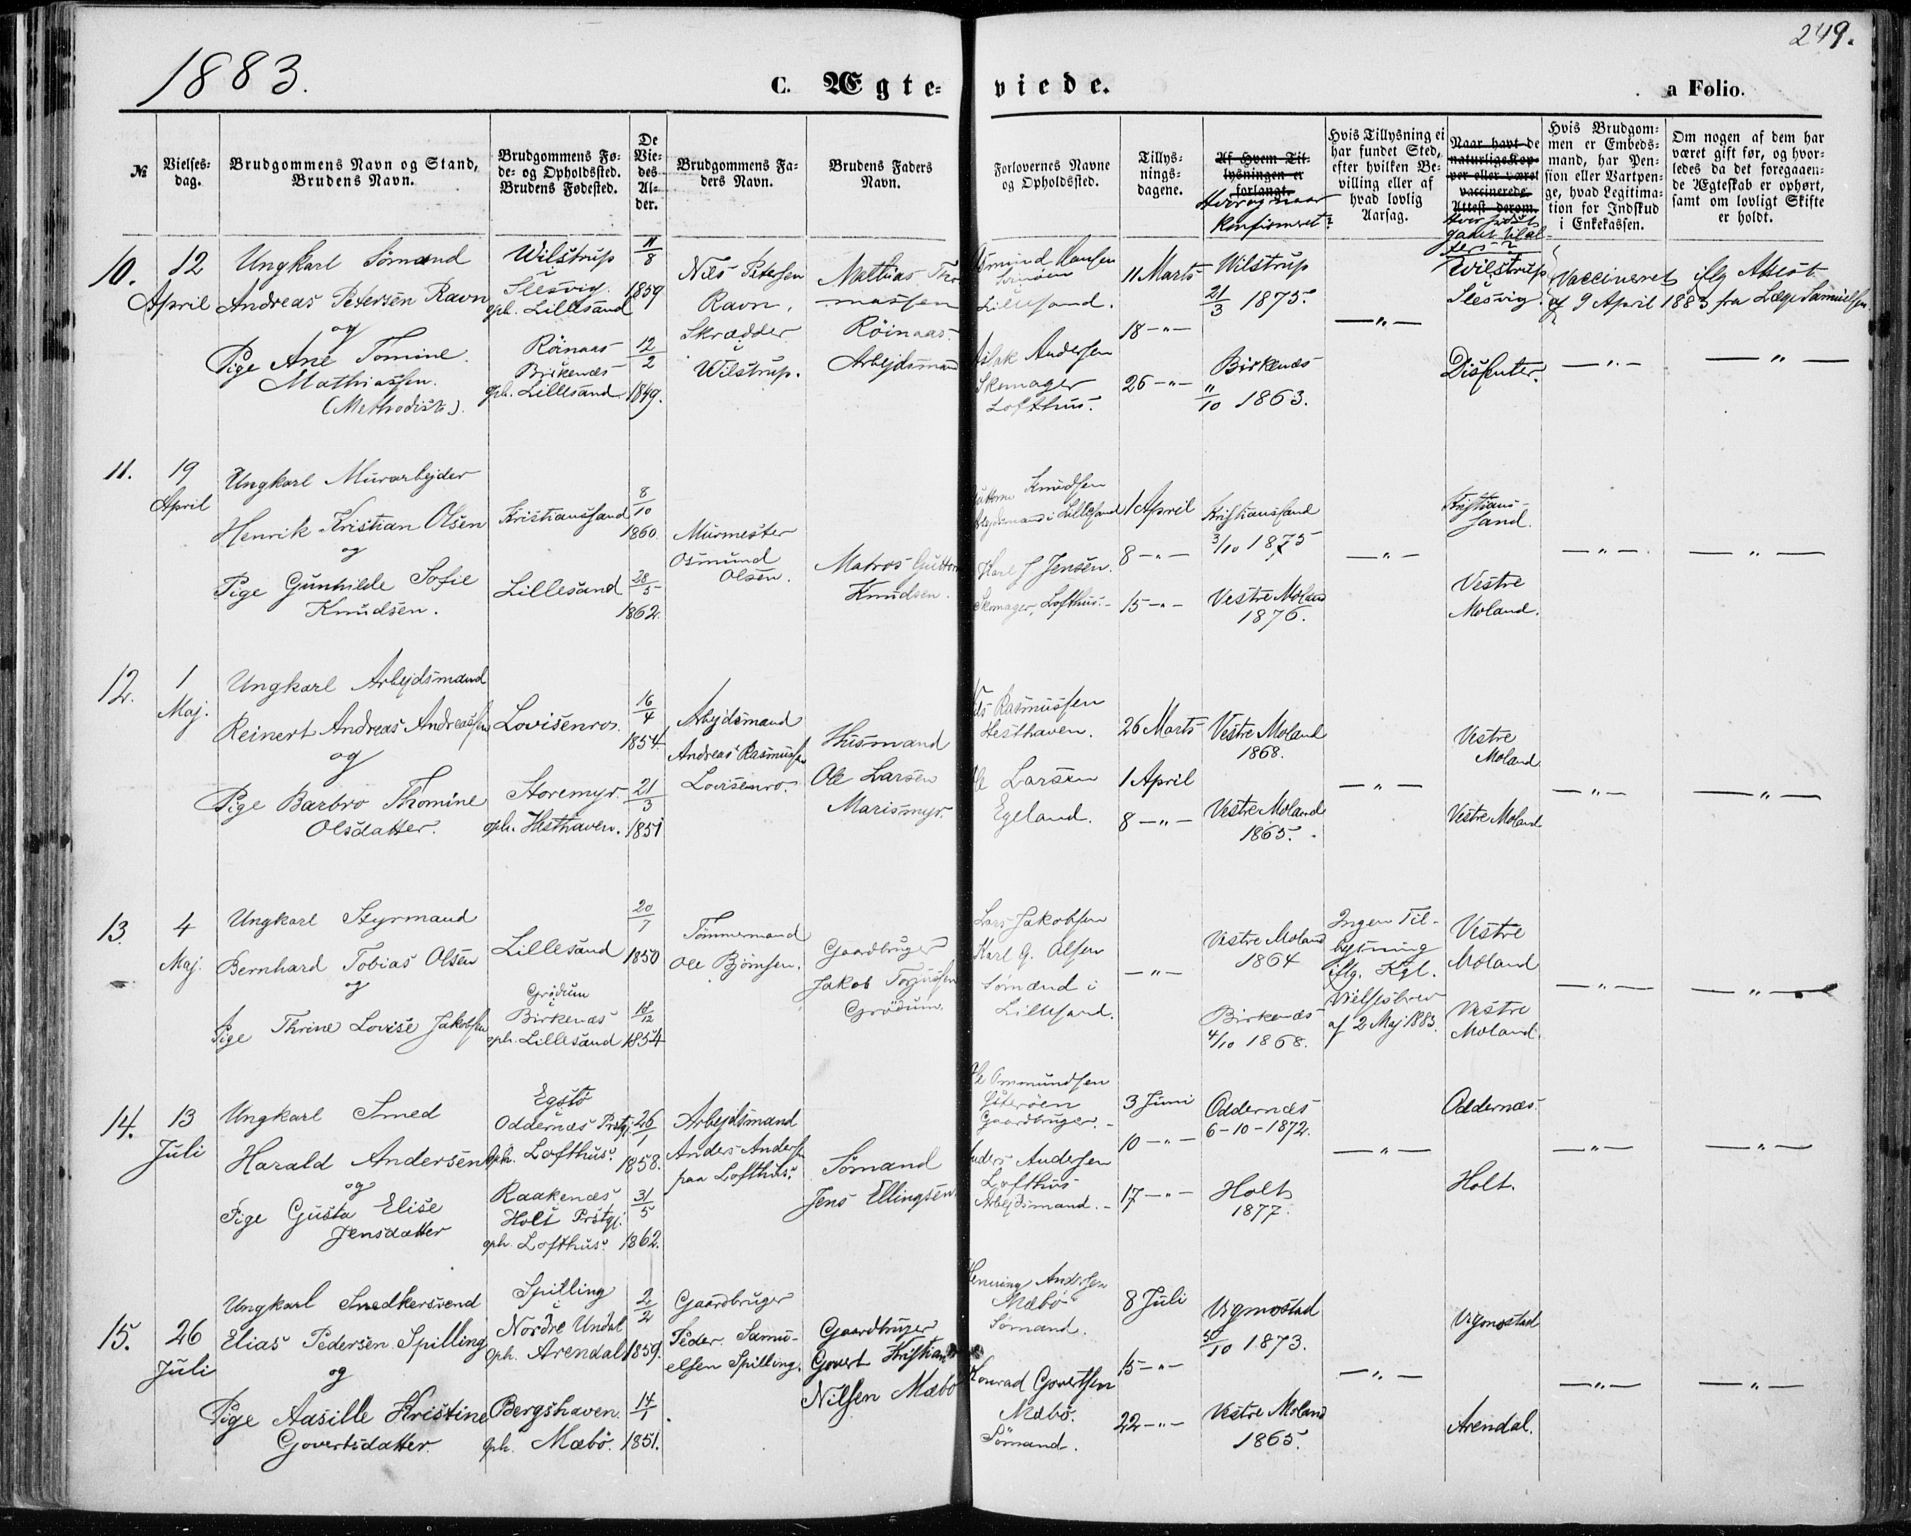 1883.
C. Ægte-
viede.
249.
a Folio.
№
Vielses-
dag.
Brudgommens Navn og Stand,
Brudens Navn.
Brudgommens Fø-
de- og Opholdssted.
Brudens Fødested.
De
Vie-
des
Al-
der.
Brudgommens Fa-
ders Navn.
Brudens Faders
Navn.
Forlovernes Navne
og Opholdssted.
Tillys-
nings-
dagene.
Af Hvem Til-
lysningen er
forlangt.
Hvor og naar
Konfirmeret?
Hvis Tillysning ei
har fundet Sted,
efter hvilken Be-
villing eller af
hvad lovlig
Aarsag.
Naar havt de
naturlige Kop-
per eller været
vaccinerede.
Attest derom.
Hvis Brudgom-
men er Embeds-
mand, har Pen-
sion eller Vartpen-
ge, hvad Legitima-
tion for Indskud
i Enkekassen.
Om nogen af dem har
været gift før, og hvor-
ledes da det foregaaen-
de Ægteskab er ophørt,
samt om lovligt Skifte
er holdt.
10.
12
April
Ungkarl Sømand
Andreas Petersen Ravn
og
Pige Ane Tomine
Mathiassen.
(Methodist).
Wilstrup
Slesvig.
oph. Lillesand
Röinaas
Birkenæs
oph. Lillesand.
11/8
1859
12/2
1849.
Nils Petersen
Ravn,
Skrædder
Wilstrup.
Mathias Tho-
massen
Röinaas
Arbejdsmand
Asmund Hansen
Lillesand.
Aslak Andersen
Skomager
Lofthus.
11 Marts
18 -"-
26 -"-
Wilstrup
21/3 1875.
Birkenæs
"/10 1863.
-"-
Wilstrup
Slesvig.
Disenter.
Vaccineret iflg Attest
af 9 April 1883 fra Læge Samuelsen
-"-
-"-
11.
19
April
Ungkarl Murarbejder
Henrik Kristian Olsen
og
Pige Gunhilde Sofie
Knudsen.
Kristianssand
Lillesand
8/10
1860.
28/5
1862.
Murmester
Osmund
Olsen.
Matros Guttorm
Knudsen.
Guttorm Knudsen
Arbejdsmand i Lillesand
Karl J Jensen.
Skomager, Lofthus.
1 April
8 -"-
15 -"-
Kristianssand
3/10 1875
Vestre Moland
1876.
-"-
Kristians-
sand.
Vestre
Moland.
-"-
-"-
12.
1
Maj.
Ungkarl Arbejdsmand
Reinert Andreas Andreassen
og
Pige Barbro Thomine
Olsdatter.
Lovisenro.
Storemyr.
oph. Hesthaven.
16/4
1854.
21/3
1851
Arbejdsmand
Andreas Rasmussen
Lovisenro.
Husmand
Ole Larsen
Marismyr.
Nils Rasmussen
Hesthaven.
Ole Larsen
Egeland.
26 Marts
1 April
8 -"-
Vestre Moland
1868.
Vestre Moland
1865.
-"-
Vestre
Moland
Vestre Moland
-"-
-"-
13.
4
Maj.
Ungkarl Styrmand
Bernhard Tobias Olsen
og
Pige Thrine Lovise Jakobsen
Lillesand
Grödum
Birkenæs
oph. Lillesand
20/7
1850
18/12
1854
Tømmermand
Ole Bjørnsen.
Gaardbruger
Jakob Torjussen
Grödum.
Lars Jakobsen
Karl G. Olsen
Sømænd i
Lillesand.
-"-
Vestre Moland
1864
Birkenæs
4/10 1868.
Ingen Til-
lysning
iflg. Kgl.
Vielsesbrev
af 2 Maj 1883.
Vestre
Moland
Vestre
Moland.
-"-
-"-
14.
13
Juli
Ungkarl Smed
Harald Andersen
og
Pige Gusta Elise
Jensdatter
Egstö
Oddernæs Prstgj.
oph. Lofthus.
Raakenæs
Holt Prstgj.
oph. Lofthus.
26/1
1858.
31/5
1862.
Arbejdsmand
Anders Andersen
paa Lofthus.
Sømand
Jens Ellingsen.
Ole Ommundsen
Gaardbruger.
Anders Andersen
Lofthus
Arbejdsmand.
3 Juni
10 -"-
17 -"-
Oddernæs
6-10-1872.
Holt
1877.
-"-
Oddernæs
Holt.
-"-
-"-
15.
26
Juli
Ungkarl Snedkersvend
Elias Pedersen Spilling
og
Pige Aasille Kristine
Govertsdatter.
Spilling
Nordre Undal
oph. Arendal
Bergshaven.
oph. Mæbö.
2/2
1859.
14/1
1851.
Gaardbruger
Peder Samu-
elsen Spilling.
Gaardbruger
Govert Kristian
Nilsen Mæbö
Henning Andersen
Mæbö
Sømand.
Konrad Govertsen
Mæbö.
Sømand.
8 Juli
15 -"-
22 -"-
Vigmostad
30/10 1873.
Vestre Moland
1865.
-"-
Vigmostad
Arendal.
-"-
-"-